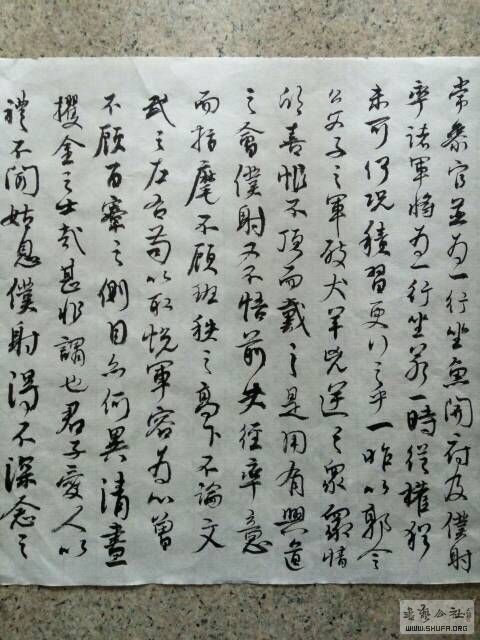 常參官並為一行坐魚開府及僕射
率諸軍將為一行坐若一時從權猶
未可何況積習更行之乎一昨以郭令
公父子之軍破犬羊兇逆之眾眾情
欣喜恨不頂而戴之是用有興道
之會僕射又不悟前失徑率意
而指麾不顧班秩之高下不論文
武之左右苟以取悅軍容為心曾
不顧百寮之側目亦何異清晝
攫金之士哉甚非謂也君子愛人以
禮不聞姑息僕射得不深念之
WWW.SHUFA.ORG